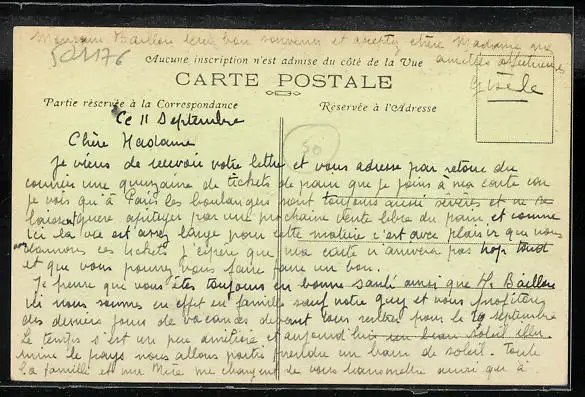 Monsieur Baillou leur bon souvenir et acceptez chère Madame mes
amitiés affectueuses
Gisèle
501176
Aucune inscription n'est admise du côté de la Vue
CARTE POSTALE
Partie réservée à la Correspondance
Réservée à l'Adresse
50
Ce 11 Septembre
Chère Madame
Je viens de recevoir votre lettre et vous adresse par retour du
courrier une quinzaine de tickets de pain que je joins à ma carte car
je vois qu'à Paris les boulangers sont toujours aussi sévères et ne se
laissent guère apitoyer par une prochaine vente libre du pain, et comme
ici la vie est assez large pour cette matière c'est avec plaisir que nous
vous donnons ces tickets j'espère que ma carte n'arrivera pas trop tard
et que vous pourrez vous faire faire un bon.
Je pense que vous êtes toujours en bonne santé ainsi que M. Baillou
ici nous sommes en effet en famille sauf notre Guy et vous profitez
des derniers jours de vacances devant tous rentrer pour le 29 septembre
Le temps s'est un peu amélioré et aujourd'hui un beau soleil illu-
mine le pays nous allons partir prendre un bain de soleil. Toute
la famille et ma Mère me chargent de vous transmettre ainsi qu'à